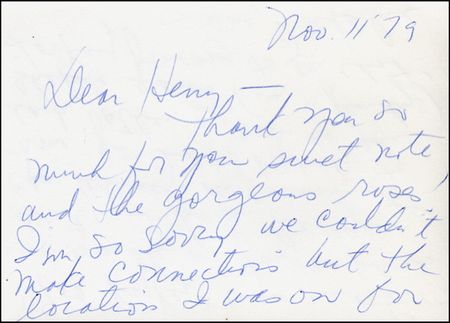 Nov. 11 '79
Dear Henry —
Thank you so
much for your sweet note,
and the gorgeous roses!
I'm so sorry we couldn't
make connections but the
location I was on for